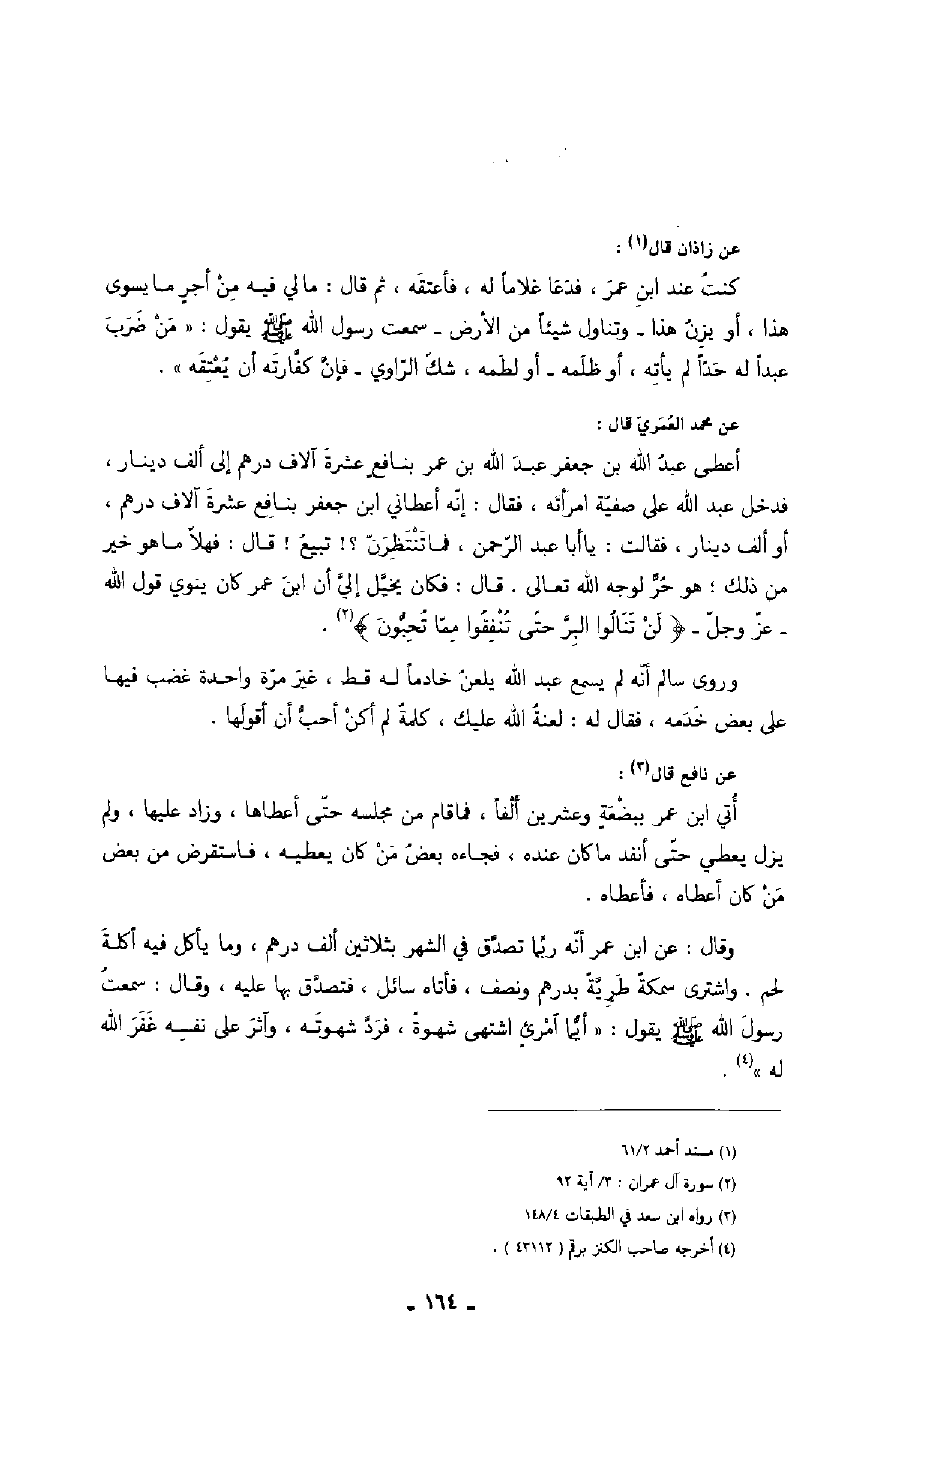 عن زاذان قال(١) :
كنتُ عند ابنِ عمَرَ ، فدَعَا غلاماً له ، فأعتقَه ، ثم قال : مالي فيه مِنْ أجرٍ مايسوى
هذا ، أو يزِنُ هذا ـ وتناول شيئاً من الأرض ـ سمعت رسول الله ﷺ يقول : « مَنْ ضَرَبَ
عبداً له حَدّاً لم يأتِه ، أو ظلَمه ـ أو لطَمه ، شكّ الرّاوي ـ فإنّ كفّارتَه أن يُعْتِقَه » .
عن محمد العُمَريّ قال :
أعطى عبدُ الله بن جعفر عبدَ الله بن عمر بنافع عشرةَ آلاف درهم إلى ألف دينار ،
فدخل عبد الله على صفيّة امرأته ، فقال : إنّه أعطاني ابن جعفر بنافع عشرةَ آلاف درهم ،
أو ألف دينار ، فقالت : ياأبا عبد الرّحمن ، فماتَنْتَظِرَنّ ؟! تبيعُ ! قال : فهلاّ ماهو خير
من ذلك ؛ هو حُرٌّ لوجه الله تعالى . قال : فكان يخيَّل إليّ أن ابنَ عمر كان ينوي قول الله
ـ عزّ وجلّ ـ ﴿ لَنْ تَنَالُوا البِرَّ حتّى تُنْفِقُوا مِمّا تُحِبُّونَ ﴾(٢) .
وروى سالم أنّه لم يسمع عبد الله يلعنُ خادماً له قط ، غيرَ مرّة واحدة غضب فيها
على بعض خَدَمه ، فقال له : لعنةُ الله عليك ، كلمةٌ لم أكنْ أحبُّ أن أقولَها .
عن نافع قال(٣) :
أُتي ابن عمر ببِضْعَةٍ وعشرين ألْفاً ، فماقام من مجلسه حتّى أعطاها ، وزاد عليها ، ولم
يزل يعطي حتّى أنفد ماكان عنده ، فجاءه بعضُ مَنْ كان يعطيه ، فاستقرض من بعض
مَنْ كان أعطاه ، فأعطاه .
وقال : عن ابن عمر أنّه ربّما تصدّق في الشهر بثلاثين ألف درهم ، وما يأكل فيه أكلةَ
لحم . واشترى سمكةً طريّةً بدرهم ونصف ، فأتاه سائل ، فتصدّق بها عليه ، وقال : سمعتُ
رسولَ الله ﷺ يقول : « أيُّما امْرِئٍ اشتهى شهوةً ، فرَدَّ شهوتَه ، وآثرَ على نفسِه غَفَرَ الله
له »(٤) .
(١) مسند أحمد ٦١/٢
(٢) سورة آل عمران : ٣/ آية ٩٢
(٣) رواه ابن سعد في الطبقات ١٤٨/٤
(٤) أخرجه صاحب الكنز برقم ( ٤٣١١٢ ) .
ـ ١٦٤ ـ